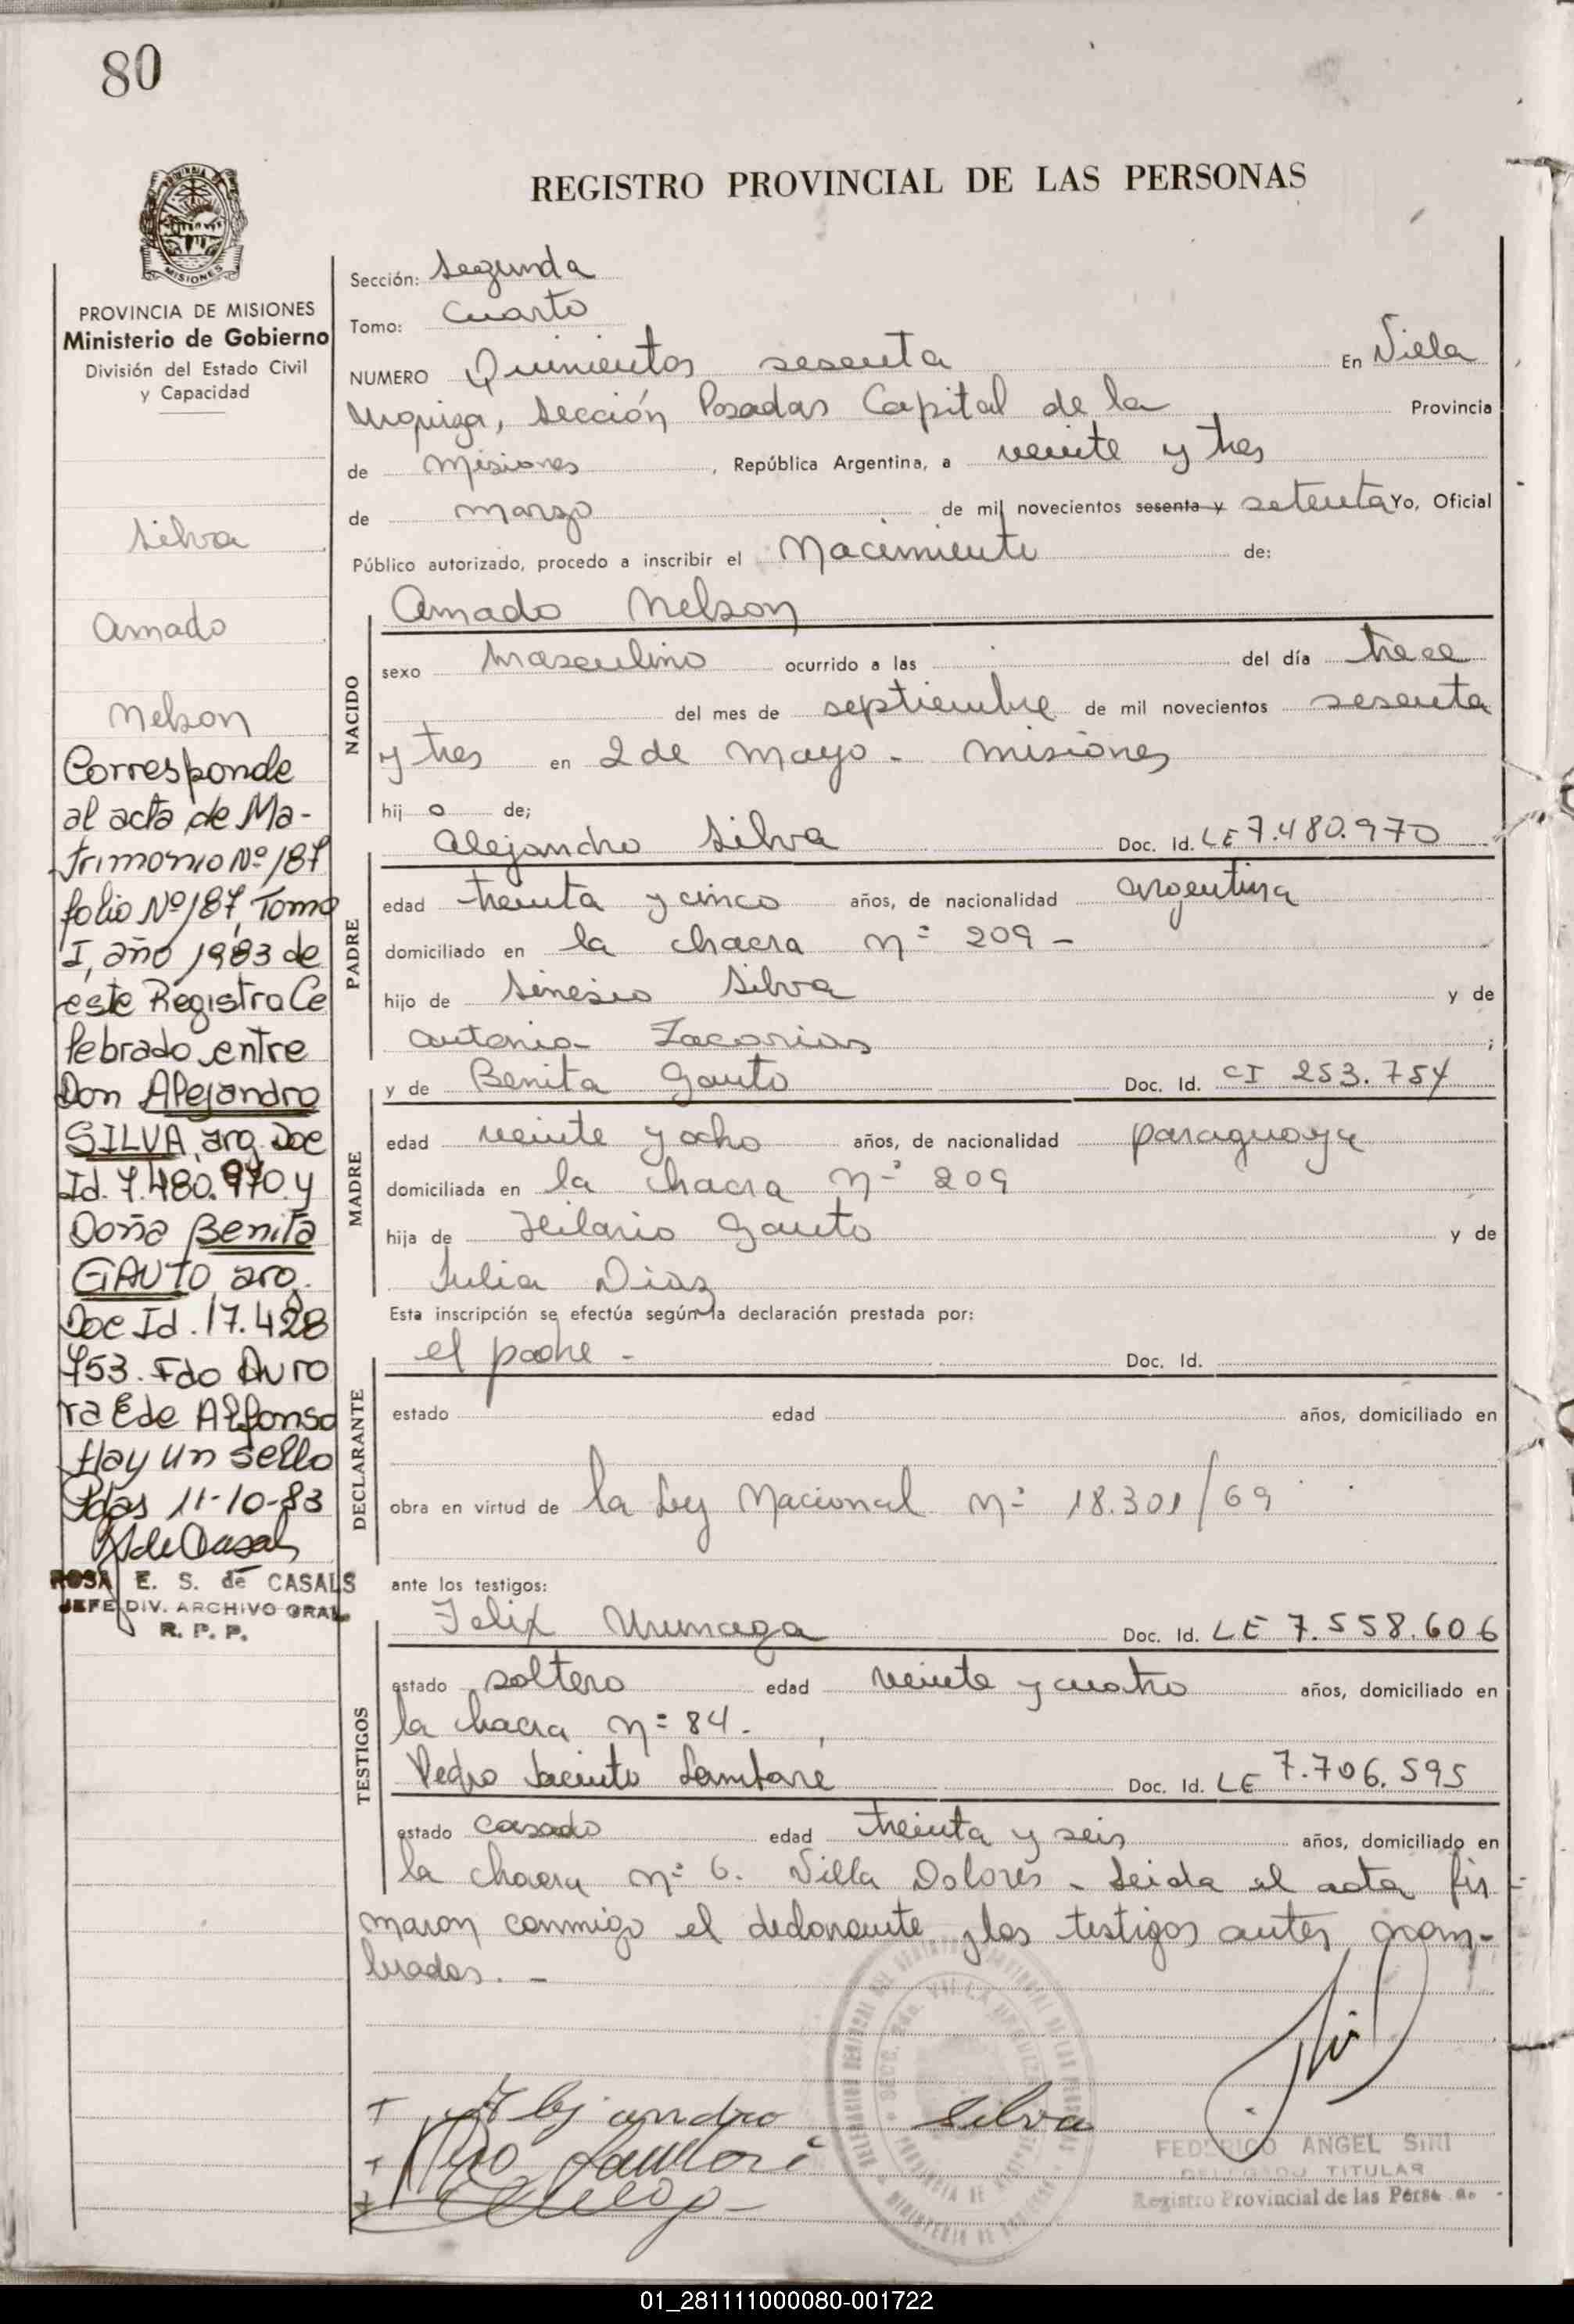 80
REGISTRO PROVINCIAL DE LAS PERSONAS
MISIONES
PROVINCIA DE MISIONES
Ministerio de Gobierno
División del Estado Civil
y Capacidad
Silva
Amado
Nelson
Corresponde
al acta de Ma-
trimonio Nº 187
folio Nº 187, Tomo
I, año 1983 de
este Registro Ce
lebrado entre
Don Alejandro
SILVA, arg. Doc
Id. 7.480.970 y
Doña Benita
GAUTO arg.
Doc Id. 17.428
753. Fdo Auro
ra E de Alfonso
Hay un sello
Pdas 11-10-83
ROSA E. S. de CASALS
JEFE DIV. ARCHIVO GRAL
R. P. P.
Sección: Segunda
Tomo: Cuarto
NUMERO Quinientos sesenta En Villa
Urquiza, Sección Posadas Capital de la Provincia
de Misiones, República Argentina, a veinte y tres
de marzo de mil novecientos sesenta y setenta Yo, Oficial
Público autorizado, procedo a inscribir el Nacimiento de:
Amado Nelson
NACIDO
sexo masculino ocurrido a las del día trece
del mes de septiembre de mil novecientos sesenta
y tres en 2 de Mayo - Misiones
hij o de;
Alejandro Silva Doc. Id. LE 7.480.970
PADRE
edad treinta y cinco años, de nacionalidad argentina
domiciliado en la chacra nº 209 -
hijo de Sinesio Silva y de
Antonia Zacarias ;
y de Benita Gauto Doc. Id. CI 253.754
MADRE
edad veinte y ocho años, de nacionalidad paraguaya
domiciliada en la chacra nº 209
hija de Hilario Gauto y de
Julia Diaz
Esta inscripción se efectúa según la declaración prestada por:
el padre - Doc. Id.
DECLARANTE
estado edad años, domiciliado en
obra en virtud de la Ley Nacional nº 18.301/69
ante los testigos:
Felix Doc. Id. LE 7.558.606
TESTIGOS
estado soltero edad veinte y cuatro años, domiciliado en
la chacra nº 84.
Pedro Jacinto Lambaré Doc. Id. LE 7.706.595
estado casado edad treinta y seis años, domiciliado en
la chacra nº 6. Villa Dolores - Leida el acta fir
maron conmigo el declarante y los testigos antes nom-
brados. -
Alejandro Silva
FEDERICO ANGEL
DELEGADO TITULAR
Registro Provincial de las Personas
01_281111000080-001722